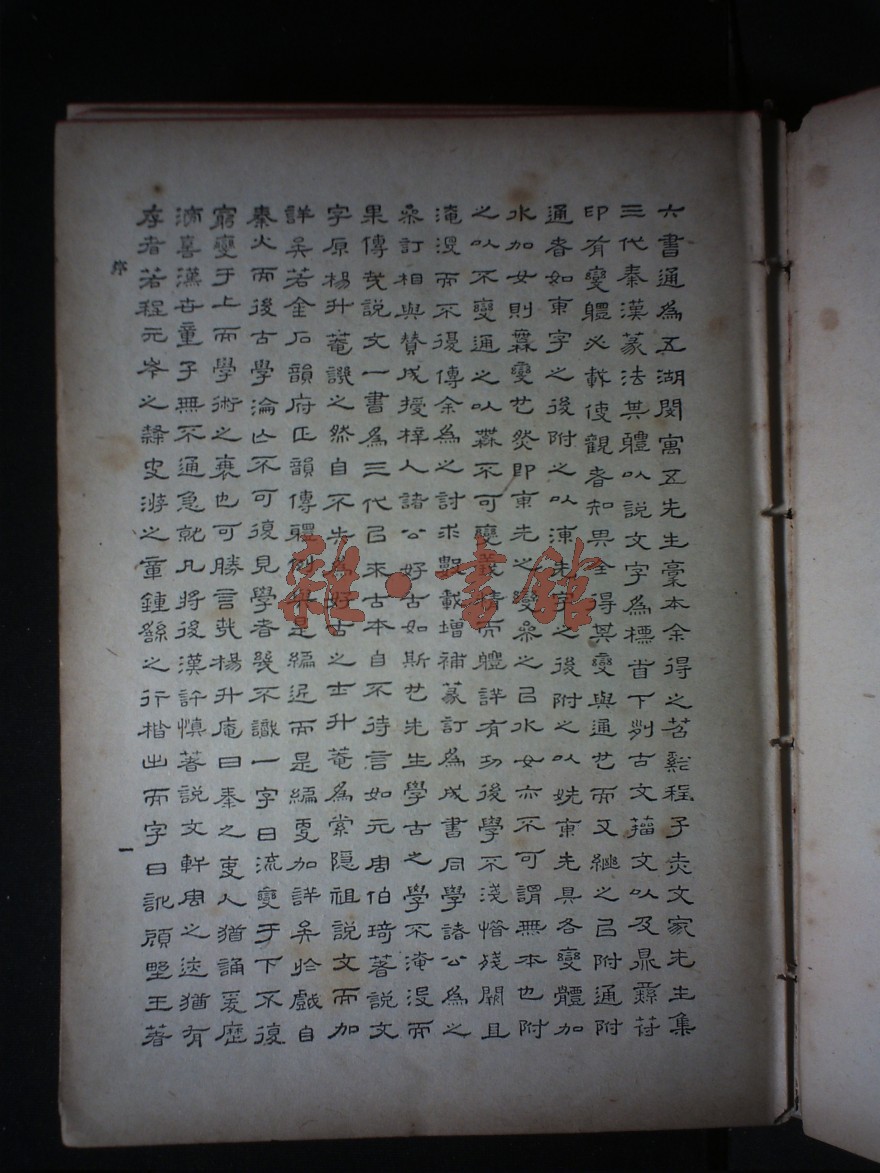 六書通爲五湖閔寓五先生稾本余得之苕谿程子赤文家先生集
三代秦漢篆法其軆以說文字爲標首下列古文籀文以及鼎彝符
印有變軆必載使觀者知異仝得其變與通也而又繼之㠯附通附
通者如東字之後附之以涷先字之後附之以姺東先具各變體加
水加女則彝變也然即東先之變叅之㠯水女亦不可謂無本也附
之以不變通之以彝不可變義精而軆詳有功後學不淺惜殘闕且
淹沒而不復傳余爲之討求數載增補篆訂爲成書同學諸公爲之
叅訂相與贊成授梓人諸公好古如斯也先生學古之學不淹沒而
果傳㦲說文一書爲三代㠯來古本自不待言如元周伯琦著說文
字原楊升菴譔之然自不失爲好古之士升菴爲索隱祖說文而加
詳矣若金石韻府正韻傳軆例 是編近而是編更加詳矣於戲自
秦火而後古學淪亾不可復見學者㡬不識一字曰流變于下不復
窮變于上而學術之衰也可勝言㦲楊升庵曰秦之吏人猶誦爰歷
滂喜漢世童子無不通急就凡將後漢許愼著說文軒周之迹猶有
存者若程元岑之隸史游之章鍾繇之行楷出而字日訛顧野王著
序
一
雜·書館